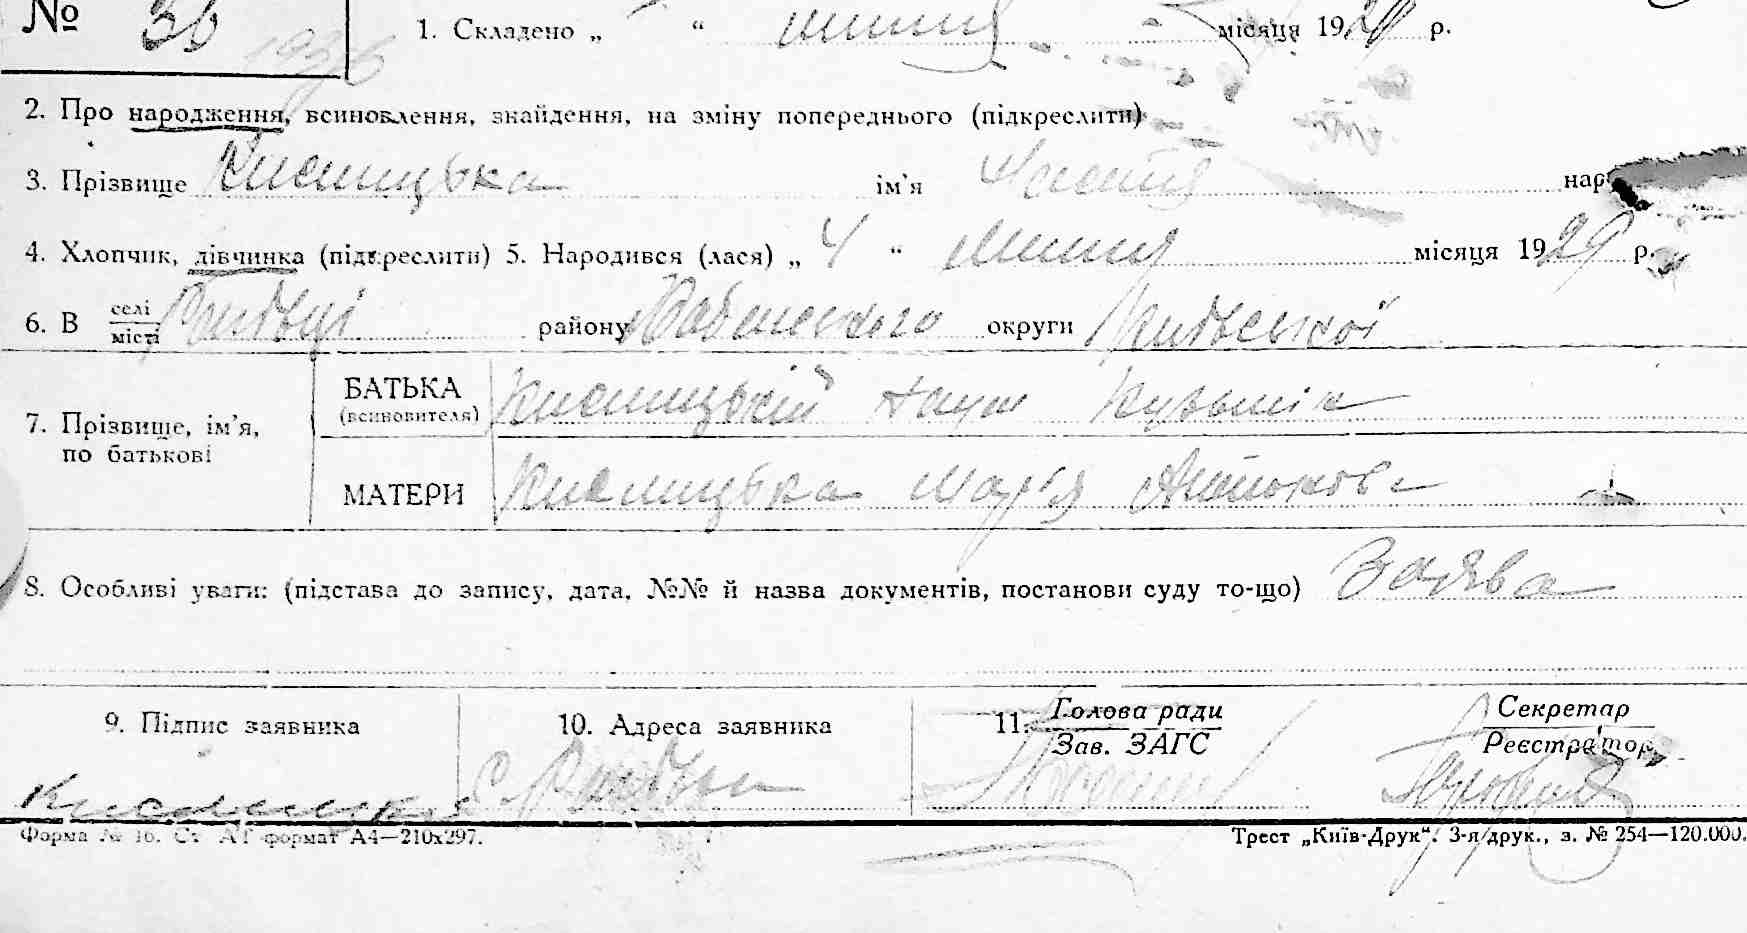 № 36
1. Складено „ “ липня місяця 1929 р.
2. Про народження, всиновлення, знайдення, на зміну попереднього (підкреслити)
3. Прізвище Кислицька ім'я нар
4. Хлопчик, дівчинка (підкреслити) 5. Народився (лася) „ 4 “ липня місяця 1929 р.
6. В селі місті району округи Київської
7. Прізвище, ім'я, по батькові
БАТЬКА (всиновителя) Кислицький Наум Кузьмін
МАТЕРИ Кислицька Марія Антонова
8. Особливі уваги: (підстава до запису, дата, №№ й назва документів, постанови суду то-що) Заява
9. Підпис заявника 10. Адреса заявника 11. Голова ради Зав. ЗАГС Секретар Реєстратор
с.
Форма № 16. Ст. А1 формат А4—210x297. Трест „Київ-Друк“. 3-я друк., з. № 254—120.000.